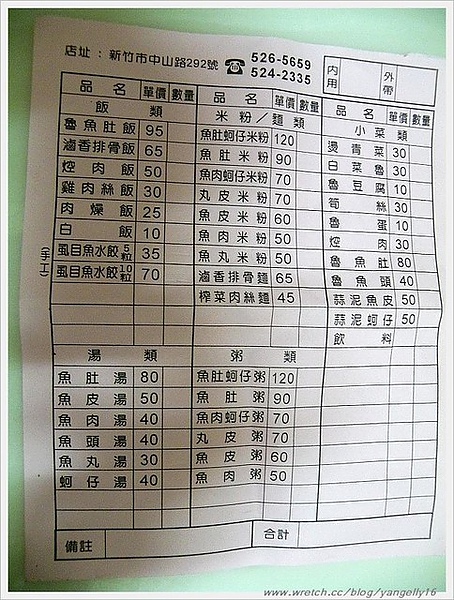 店址：新竹市中山路292號 ☎ 526-5659
524-2335
內用 外帶
品名 單價 數量
飯類
魯魚肚飯 95
滷香排骨飯 65
焢肉飯 50
雞肉絲飯 30
肉燥飯 25
白飯 10
(手工)
虱目魚水餃5粒 35
虱目魚水餃10粒 70
品名 單價 數量
米粉／麵類
魚肚蚵仔米粉 120
魚肚米粉 90
魚肉蚵仔米粉 70
丸皮米粉 70
魚皮米粉 60
魚肉米粉 50
魚丸米粉 50
滷香排骨麵 65
榨菜肉絲麵 45
品名 單價 數量
小菜類
燙青菜 30
白菜魯 30
魯豆腐 10
筍絲 30
魯蛋 10
焢肉 30
魯魚肚 80
魯魚頭 40
蒜泥魚皮 50
蒜泥蚵仔 50
飲料
湯類
魚肚湯 80
魚皮湯 50
魚肉湯 40
魚頭湯 40
魚丸湯 30
蚵仔湯 40
粥類
魚肚蚵仔粥 120
魚肚粥 90
魚肉蚵仔粥 70
丸皮粥 70
魚皮粥 60
魚肉粥 50
備註 合計
www.wretch.cc/blog/yangelly16